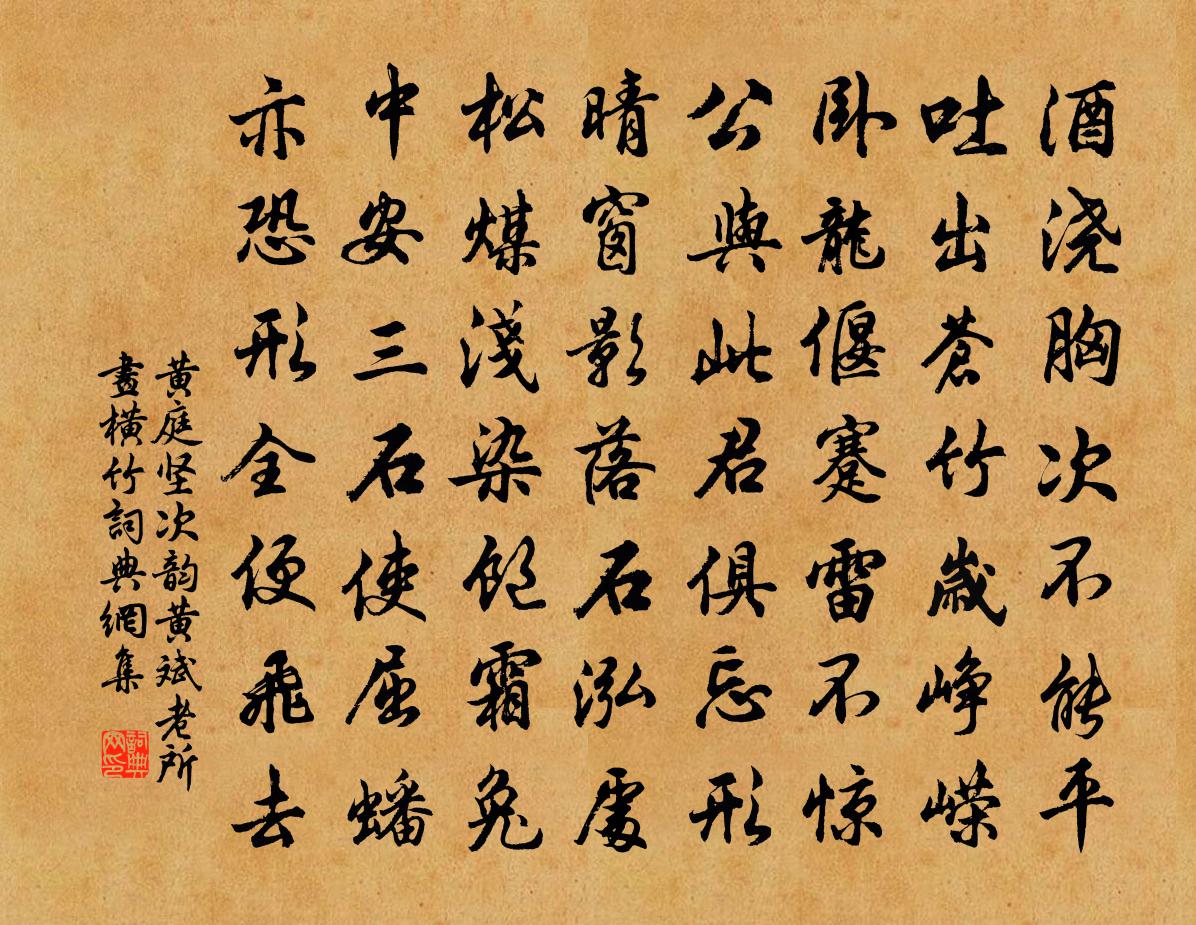 酒浇胸次不能平
吐出蒼竹歲峥嵘
卧龍偃蹇雷不惊
公與此君俱忘形
晴窗影落石泓處
松煤淺染饱霜兔
中安三石使屈蟠
亦恐形全便飛去
黄庭坚次韵黄斌老所
畫横竹詞典網集
詞典
网印